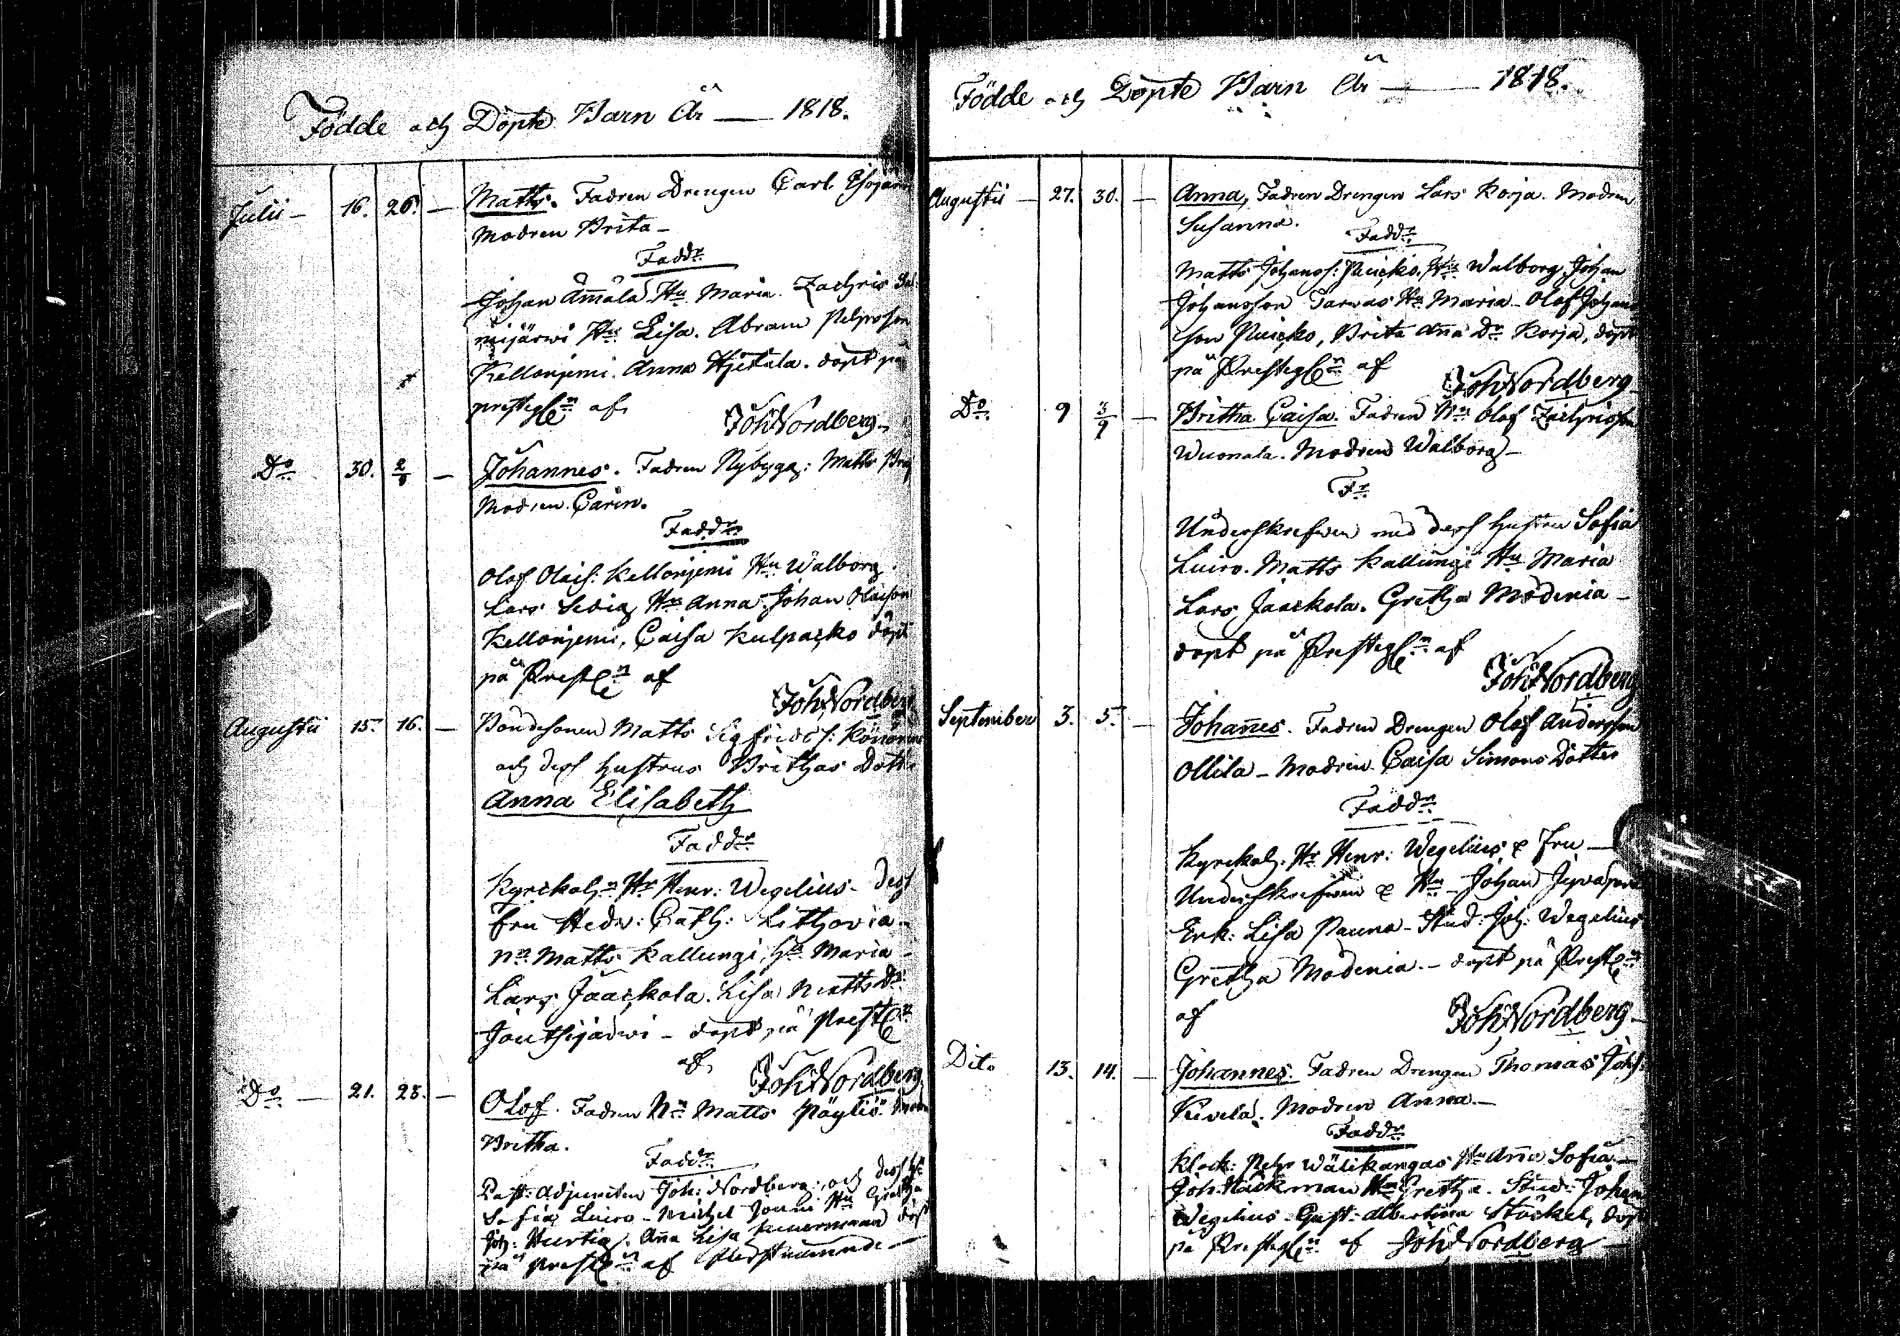 Födde och Döpte Barn År — 1818.
Julii — 16. 26. — Matts. Fadren Drengen Carl
Modren Brita —
Fadd:r
Johan Ämälä H:u Maria. Zachris
mijärwi H:u Lisa. Abram Pehrsson
Kellonjemi. Anna Hjetala. döpt på
prestg:n af JohNordberg
D:o 30. 2/8 — Johannes. Fadren Nybygg: Matts
Modren Carin.
Fadd:r
Olof Olofs: Kellonjemi H:u Walborg
Lars H:u Anna, Johan Olofson
Kellonjemi, Caisa Kulpacko döpt
på Prestg:n af
JohNordberg
Augustii 15. 16. — Bondesonen Matts Sigfrids:
och dess hustrus Brithas Dotter
Anna Elisabeth
Fadd:r
Kyrckoh:n H:r Henr: Wegelius — dess
fru Hedv: Cath: Lithovia —
N:n Matts Kallungi, H:u Maria —
Lars Jaackola. Lisa Matts D:r
Jouthijärwi — döpt på Prestg:n
af JohNordberg
D:o — 21. 23. — Olof. Fadren N:n Matts Pöyliö. Modren
Britha.
Fadd:r
Past: Adjuncten Joh: Nordberg, och dess H:u
Sofia Luiro — Michel Jouni H:u Gretha
Joh: Hurtig. Aña Lisa döpt
på Prestg:n af
Födde och Döpte Barn År — 1818.
Augustii — 27. 30. — Anna, Fadren Drengen Lars Korja. Modren
Susanna.
Fadd:r
Matts Johanss: Puicko, H:u Walborg, Johan
Johansson Tarvas H:u Maria — Olof Johans
son Puicko, Brita Aña D:r Korja, döpt
på Prestg:n af JohNordberg
D:o 9 3/9 — Britha Caisa. Fadren N:n Olof Zachrisson
Wuomala. Modren Walborg —
F:r
Underskrefwen med dess hustru Sofia
Luiro. Matts Kallungi H:u Maria
Lars Jaackola. Gretha Modenia —
döpt på Prestg:n af
JohNordberg
September 3. 5. — Johañes. Fadren Drengen Olof Andersson
Ollila — Modren Caisa Simons Dotter
Fadd:r
Kyrckoh: H:r Henr: Wegelius & fru —
Underskrefwen & H:u — Johan
Erk: Lisa Pauna — Stud: Joh: Wegelius
Gretha Modenia. — döpt på Prestg:n
af JohNordberg
Dito 13. 14. — Johannes. Fadren Drengen Thomas Johs:
Kivela. Modren Anna. —
Fadd:r
Klock: Pehr Wälikangas H:u Aña Sofia —
Joh: Häckman H:u Gretha. Stud: Johan
Wegelius — Gust: Albertina Stöckel, döpt
på Prestg:n af JohNordberg —